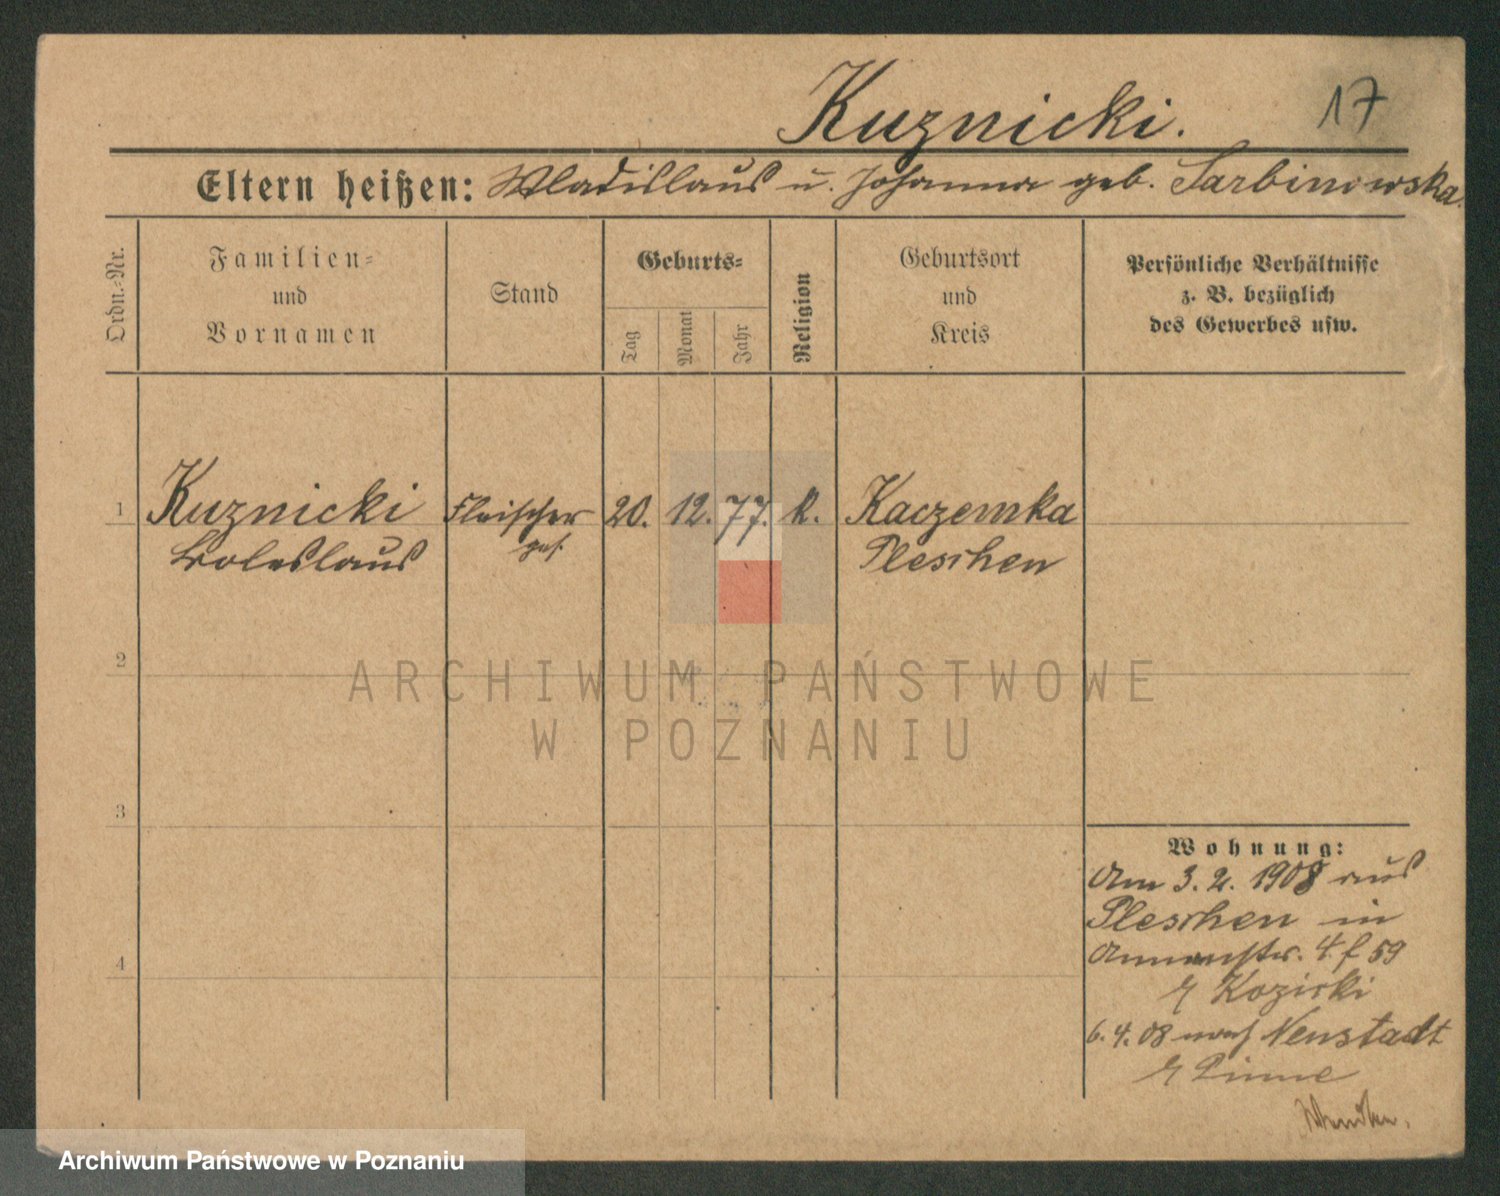 Kuznicki.
17
Eltern heißen: Wladislaus u. Johanna geb. Sarbinowska
Ordn.-Nr.
Familien-
und
Vornamen
Stand
Geburts-
Tag
Monat
Jahr
Religion
Geburtsort
und
Kreis
Persönliche Verhältnisse
z. B. bezüglich
des Gewerbes usw.
1 Kuznicki Fleischer 20. 12. 77. k. Kaczemka
Boleslaus ges. Pleschen
2
ARCHIWUM PAŃSTWOWE
W POZNANIU
3
4
Wohnung:
Am 3. 2. 1908 aus
Pleschen in
4. f 59
Kozicki
6. 4. 08 nach Neustadt
Pinne
Wenden.
Archiwum Państwowe w Poznaniu